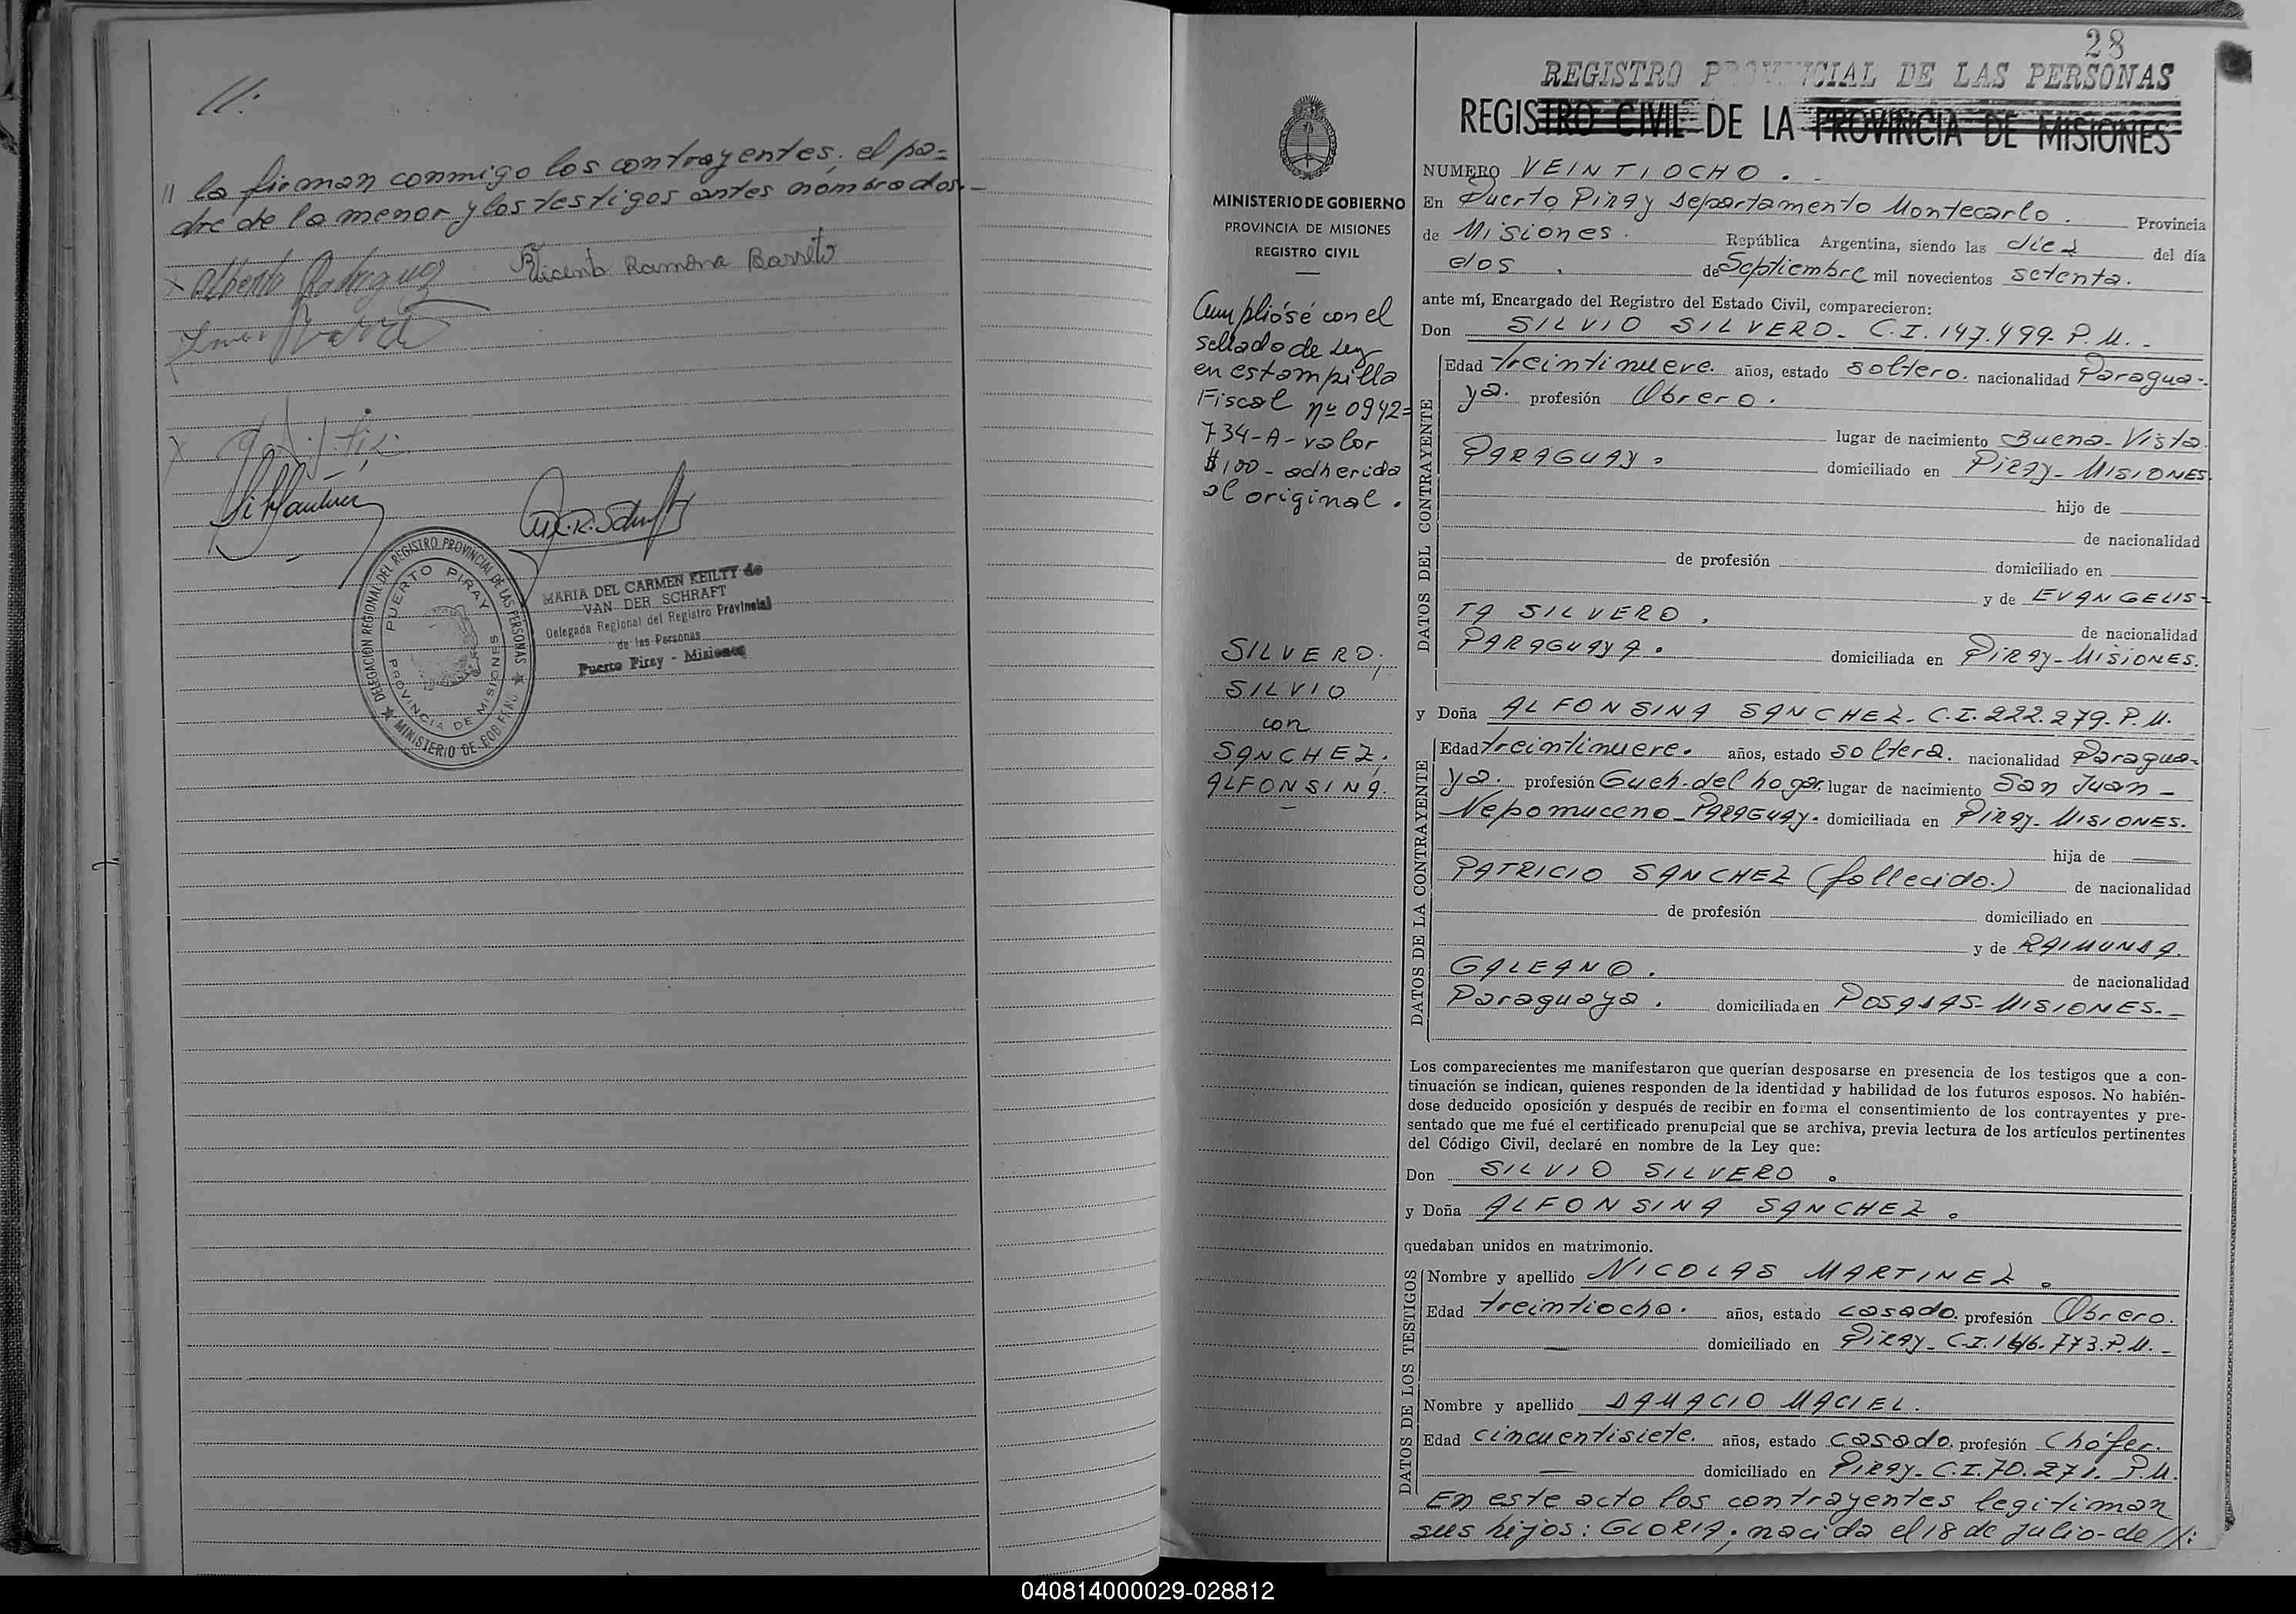 //:
// la firman conmigo los contrayentes. el pa=
dre de la menor y los testigos antes nombrados.-
Alberto Rodriguez Vicenta Ramona Barreto
DELEGACION REGIONAL DEL REGISTRO PROVINCIAL DE LAS PERSONAS
MINISTERIO DE GOBIERNO
PUERTO PIRAY
PROVINCIA DE MISIONES
MARIA DEL CARMEN KEILTY de
VAN DER SCHRAFT
Delegada Regional del Registro Provincial
de las Personas
Puerto Piray - Misiones
MINISTERIO DE GOBIERNO
PROVINCIA DE MISIONES
REGISTRO CIVIL
Cumplióse con el
sellado de Ley
en estampilla
Fiscal nº 0942=
734-A-valor
$100- adherida
al original.
SILVERO,
SILVIO
con
SANCHEZ,
ALFONSINA.
28
REGISTRO PROVINCIAL DE LAS PERSONAS
REGISTRO CIVIL DE LA PROVINCIA DE MISIONES
NUMERO VEINTIOCHO.
En Puerto Piray Departamento Montecarlo. Provincia
de Misiones. República Argentina, siendo las diez del día
dos de Septiembre mil novecientos setenta.
ante mí, Encargado del Registro del Estado Civil, comparecieron:
Don SILVIO SILVERO- C.I.147.499-P.M.-
DATOS DEL CONTRAYENTE
Edad treintinueve. años, estado soltero. nacionalidad Paragua-
ya. profesión Obrero.
lugar de nacimiento Buena-Vista.
PARAGUAY. domiciliado en PIRAY-MISIONES.
hijo de
de nacionalidad
de profesión domiciliado en
y de EVANGELIS-
TA SILVERO. de nacionalidad
PARAGUAYA. domiciliada en PIRAY-MISIONES.
y Doña ALFONSINA SANCHEZ-C.I.222.279-P.M.
DATOS DE LA CONTRAYENTE
Edad treintinueve. años, estado soltera. nacionalidad Paragua-
ya. profesión Gueh.del hogar. lugar de nacimiento San Juan-
Nepomuceno-PARAGUAY. domiciliada en PIRAY-MISIONES.
hija de
PATRICIO SANCHEZ (fallecido.) de nacionalidad
de profesión domiciliado en
y de RAIMUNDA.
GALEANO. de nacionalidad
Paraguaya. domiciliada en POSADAS-MISIONES.-
Los comparecientes me manifestaron que querían desposarse en presencia de los testigos que a con-
tinuación se indican, quienes responden de la identidad y habilidad de los futuros esposos. No habién-
dose deducido oposición y después de recibir en forma el consentimiento de los contrayentes y pre-
sentado que me fué el certificado prenupcial que se archiva, previa lectura de los artículos pertinentes
del Código Civil, declaré en nombre de la Ley que:
Don SILVIO SILVERO.
y Doña ALFONSINA SANCHEZ.
quedaban unidos en matrimonio.
DATOS DE LOS TESTIGOS
Nombre y apellido NICOLAS MARTINEZ.
Edad treintiocho. años, estado casado. profesión Obrero.
domiciliado en PIRAY- C.I.146.773.P.M.-
Nombre y apellido DAMACIO MACIEL.
Edad cincuentisiete. años, estado casado. profesión Chófer.
domiciliado en PIRAY- C.I.70.271. P.M.
En este acto los contrayentes legitiman
sus hijos: GLORIA, nacida el 18 de Julio-de //:
040814000029-028812